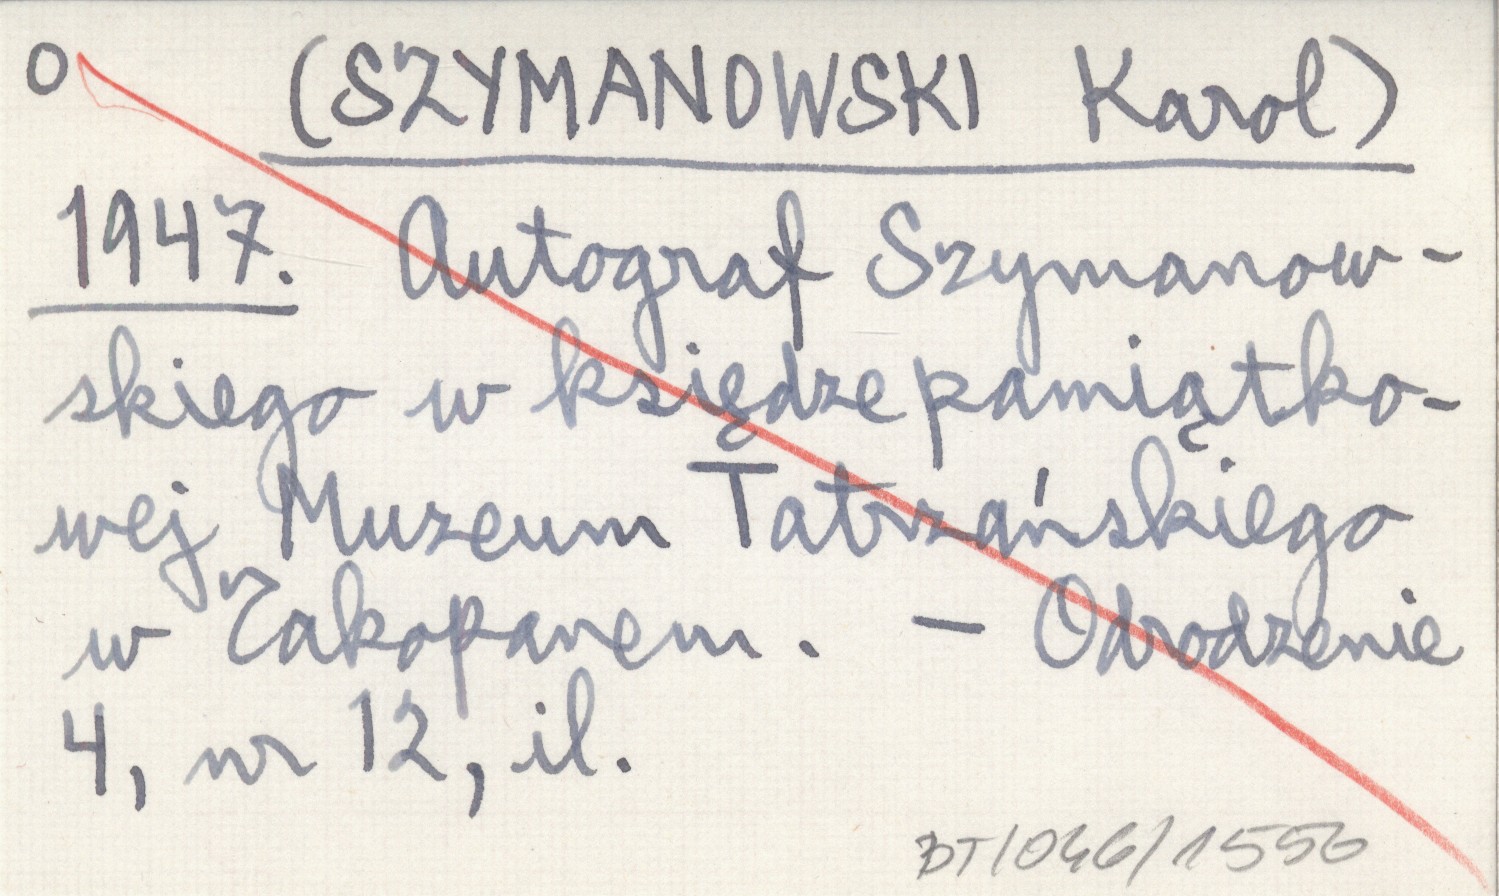 O (SZYMANOWSKI Karol)
1947. Autograf Szymanow-
skiego w księdze pamiątko-
wej Muzeum Tatrzańskiego
w Zakopanem. – Odrodzenie
4, nr 12, il.
BT/046/1556